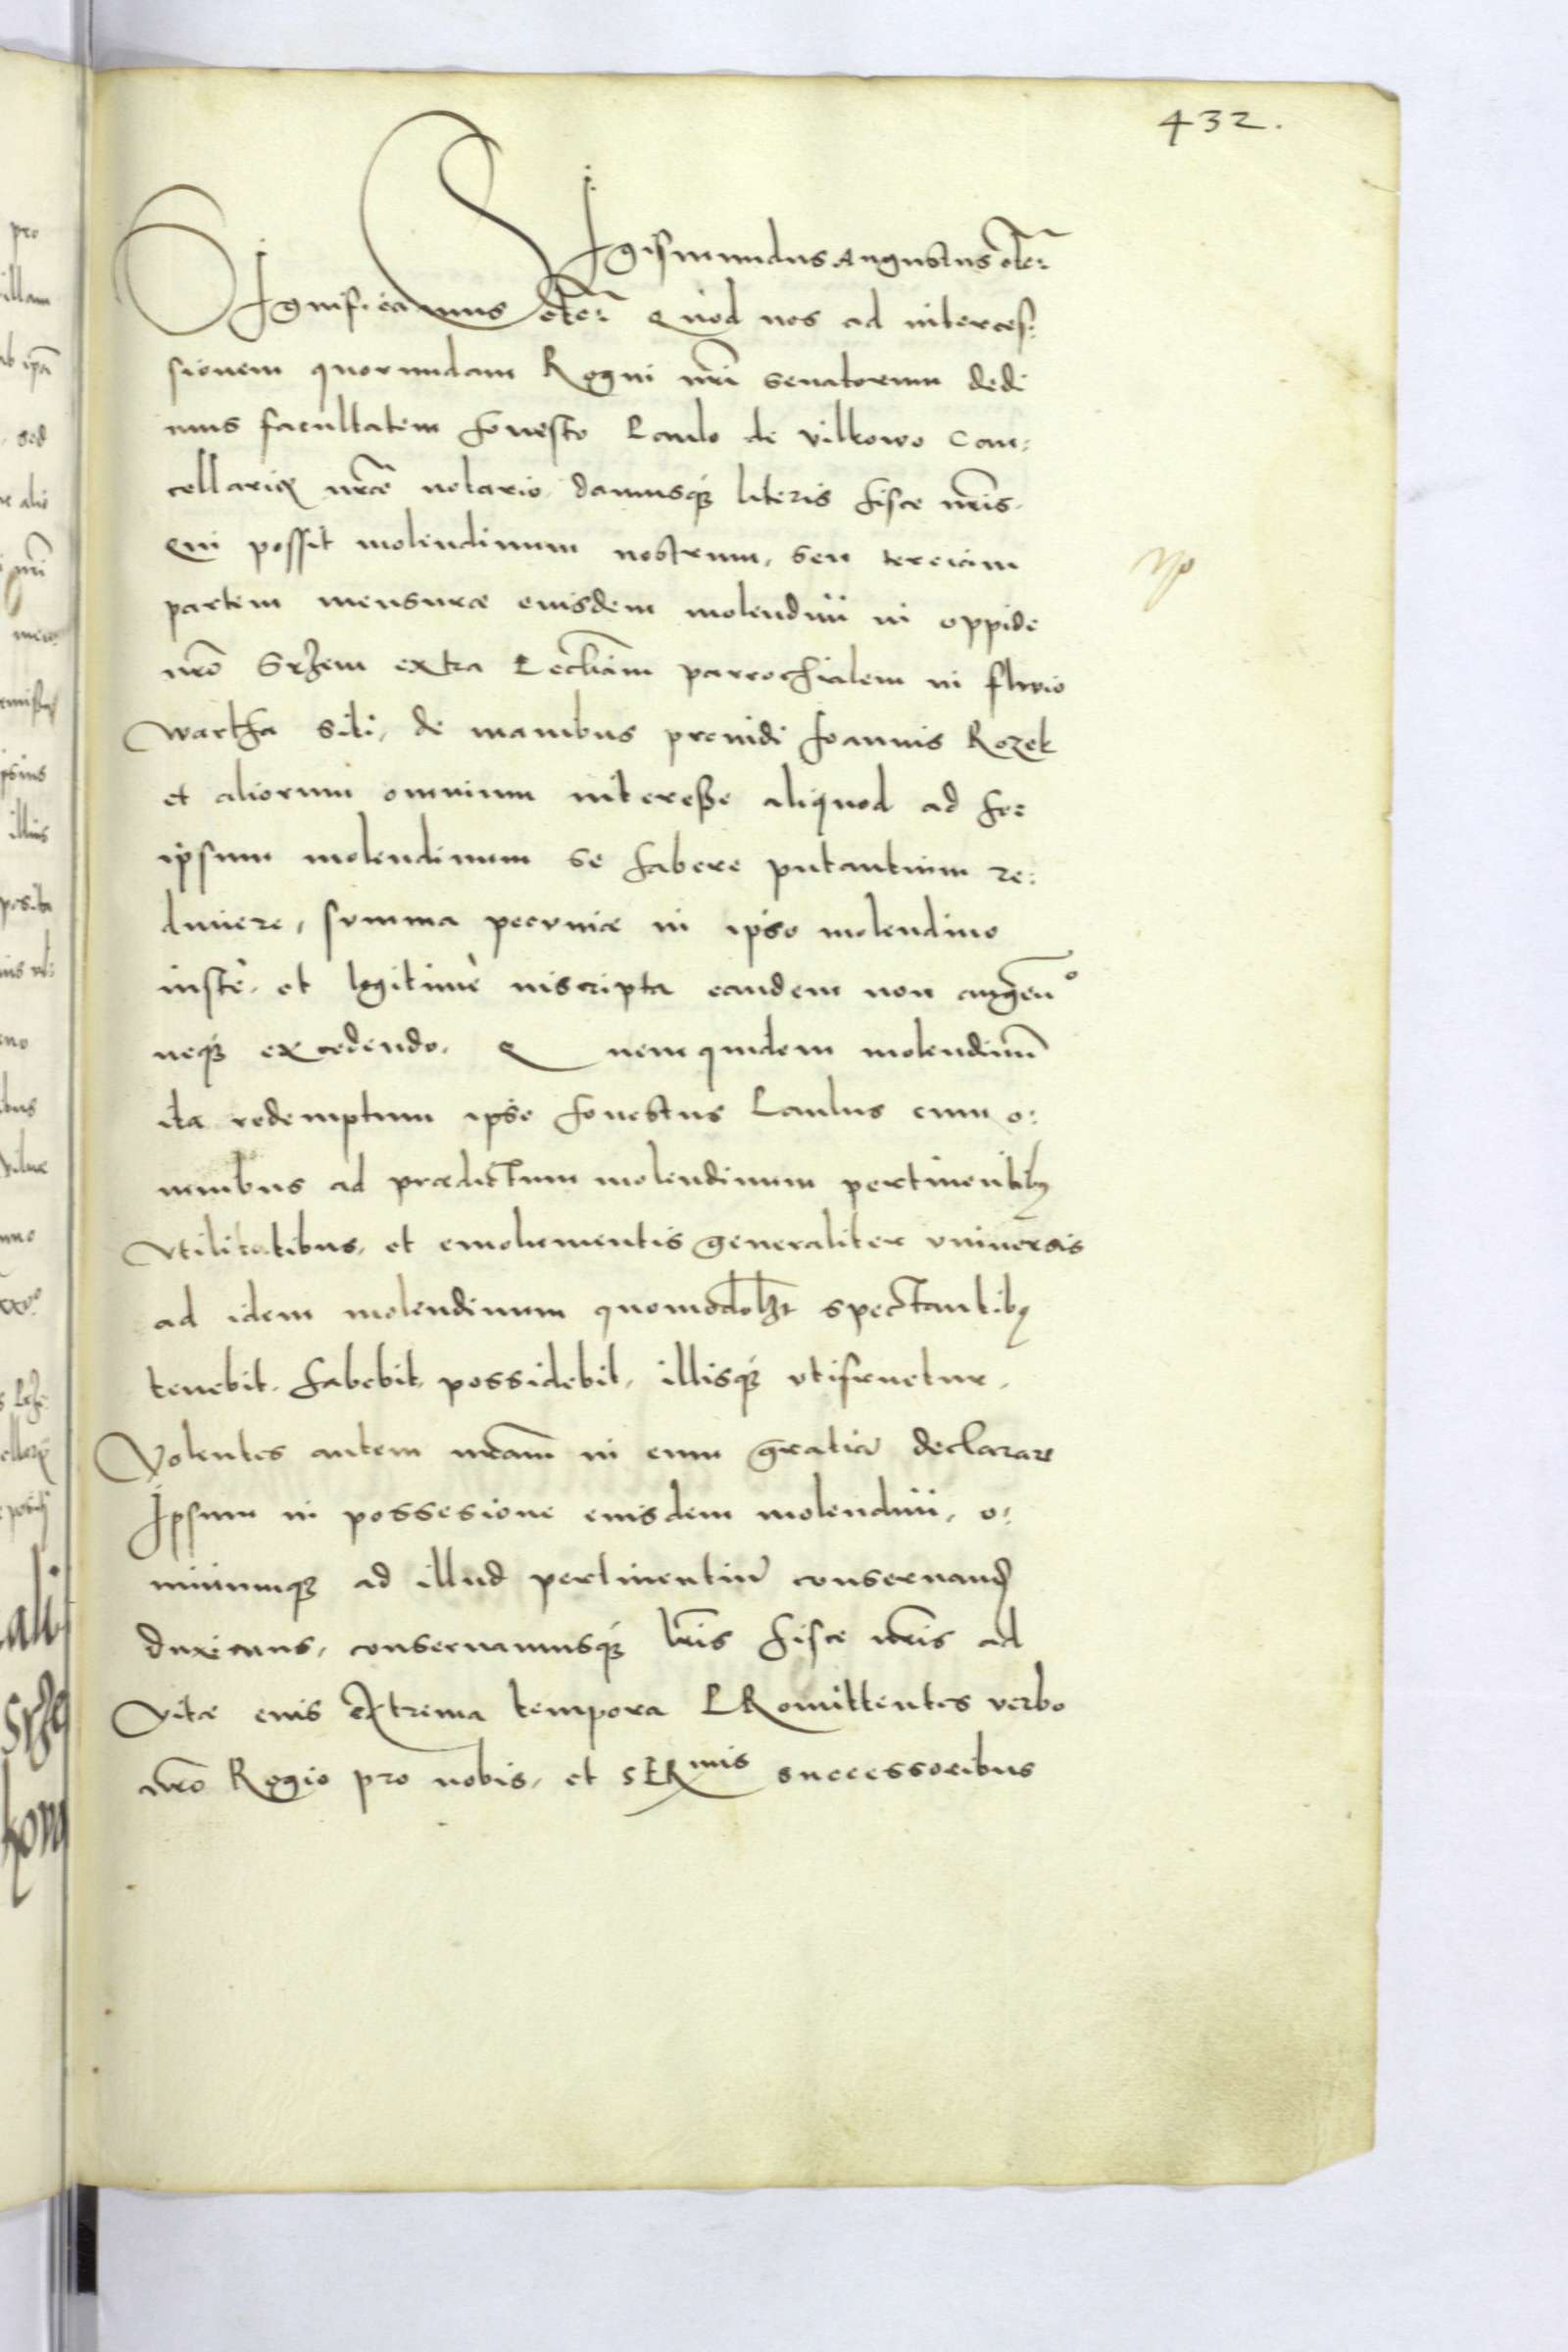 432.
Sigismundus Augustus etc:
Significamus etc: Quod nos ad interces:
sionem quorundam Regni nri senatorum dedi
mus facultatem honesto Paulo de Vilkowo Can:
cellariæ nræ notario, damusq literis hisce nris.
Qui possit molendinum nostrum, seu terciam
partem mensuræ eiusdem molendini in oppido
nro Srzem extra Eccliam parrochialem in fluvio
Wartha siti, de manibus providi Joannis Rozek
et aliorum omnium interesse aliquod ad hoc
ipsum molendinum se habere putantium re:
dimere, summa pecuniæ in ipso molendino
iustè, et legitimè inscripta eandem non augen°
neq excedendo. Quem quidem molendinu
ita redemptum ipse honestus Paulus cum o:
mnibus ad prædictum molendinum pertinentib
Vtilitatibus, et emolumentis generaliter vniuersis
ad idem molendinum quomodolzt spectantib
tenebit, habebit, possidebit, illisq vtifruetur.
Volentes autem nram in eum gratia declarare
Ipsum in possesione eiusdem molendini, o:
mniumq ad illud pertinentiu conseruand
duximus, conseruamusq lris hisce nris ad
Vitæ eius extrema tempora PRomittentes verbo
nro Regio pro nobis, et SERmis successoribus